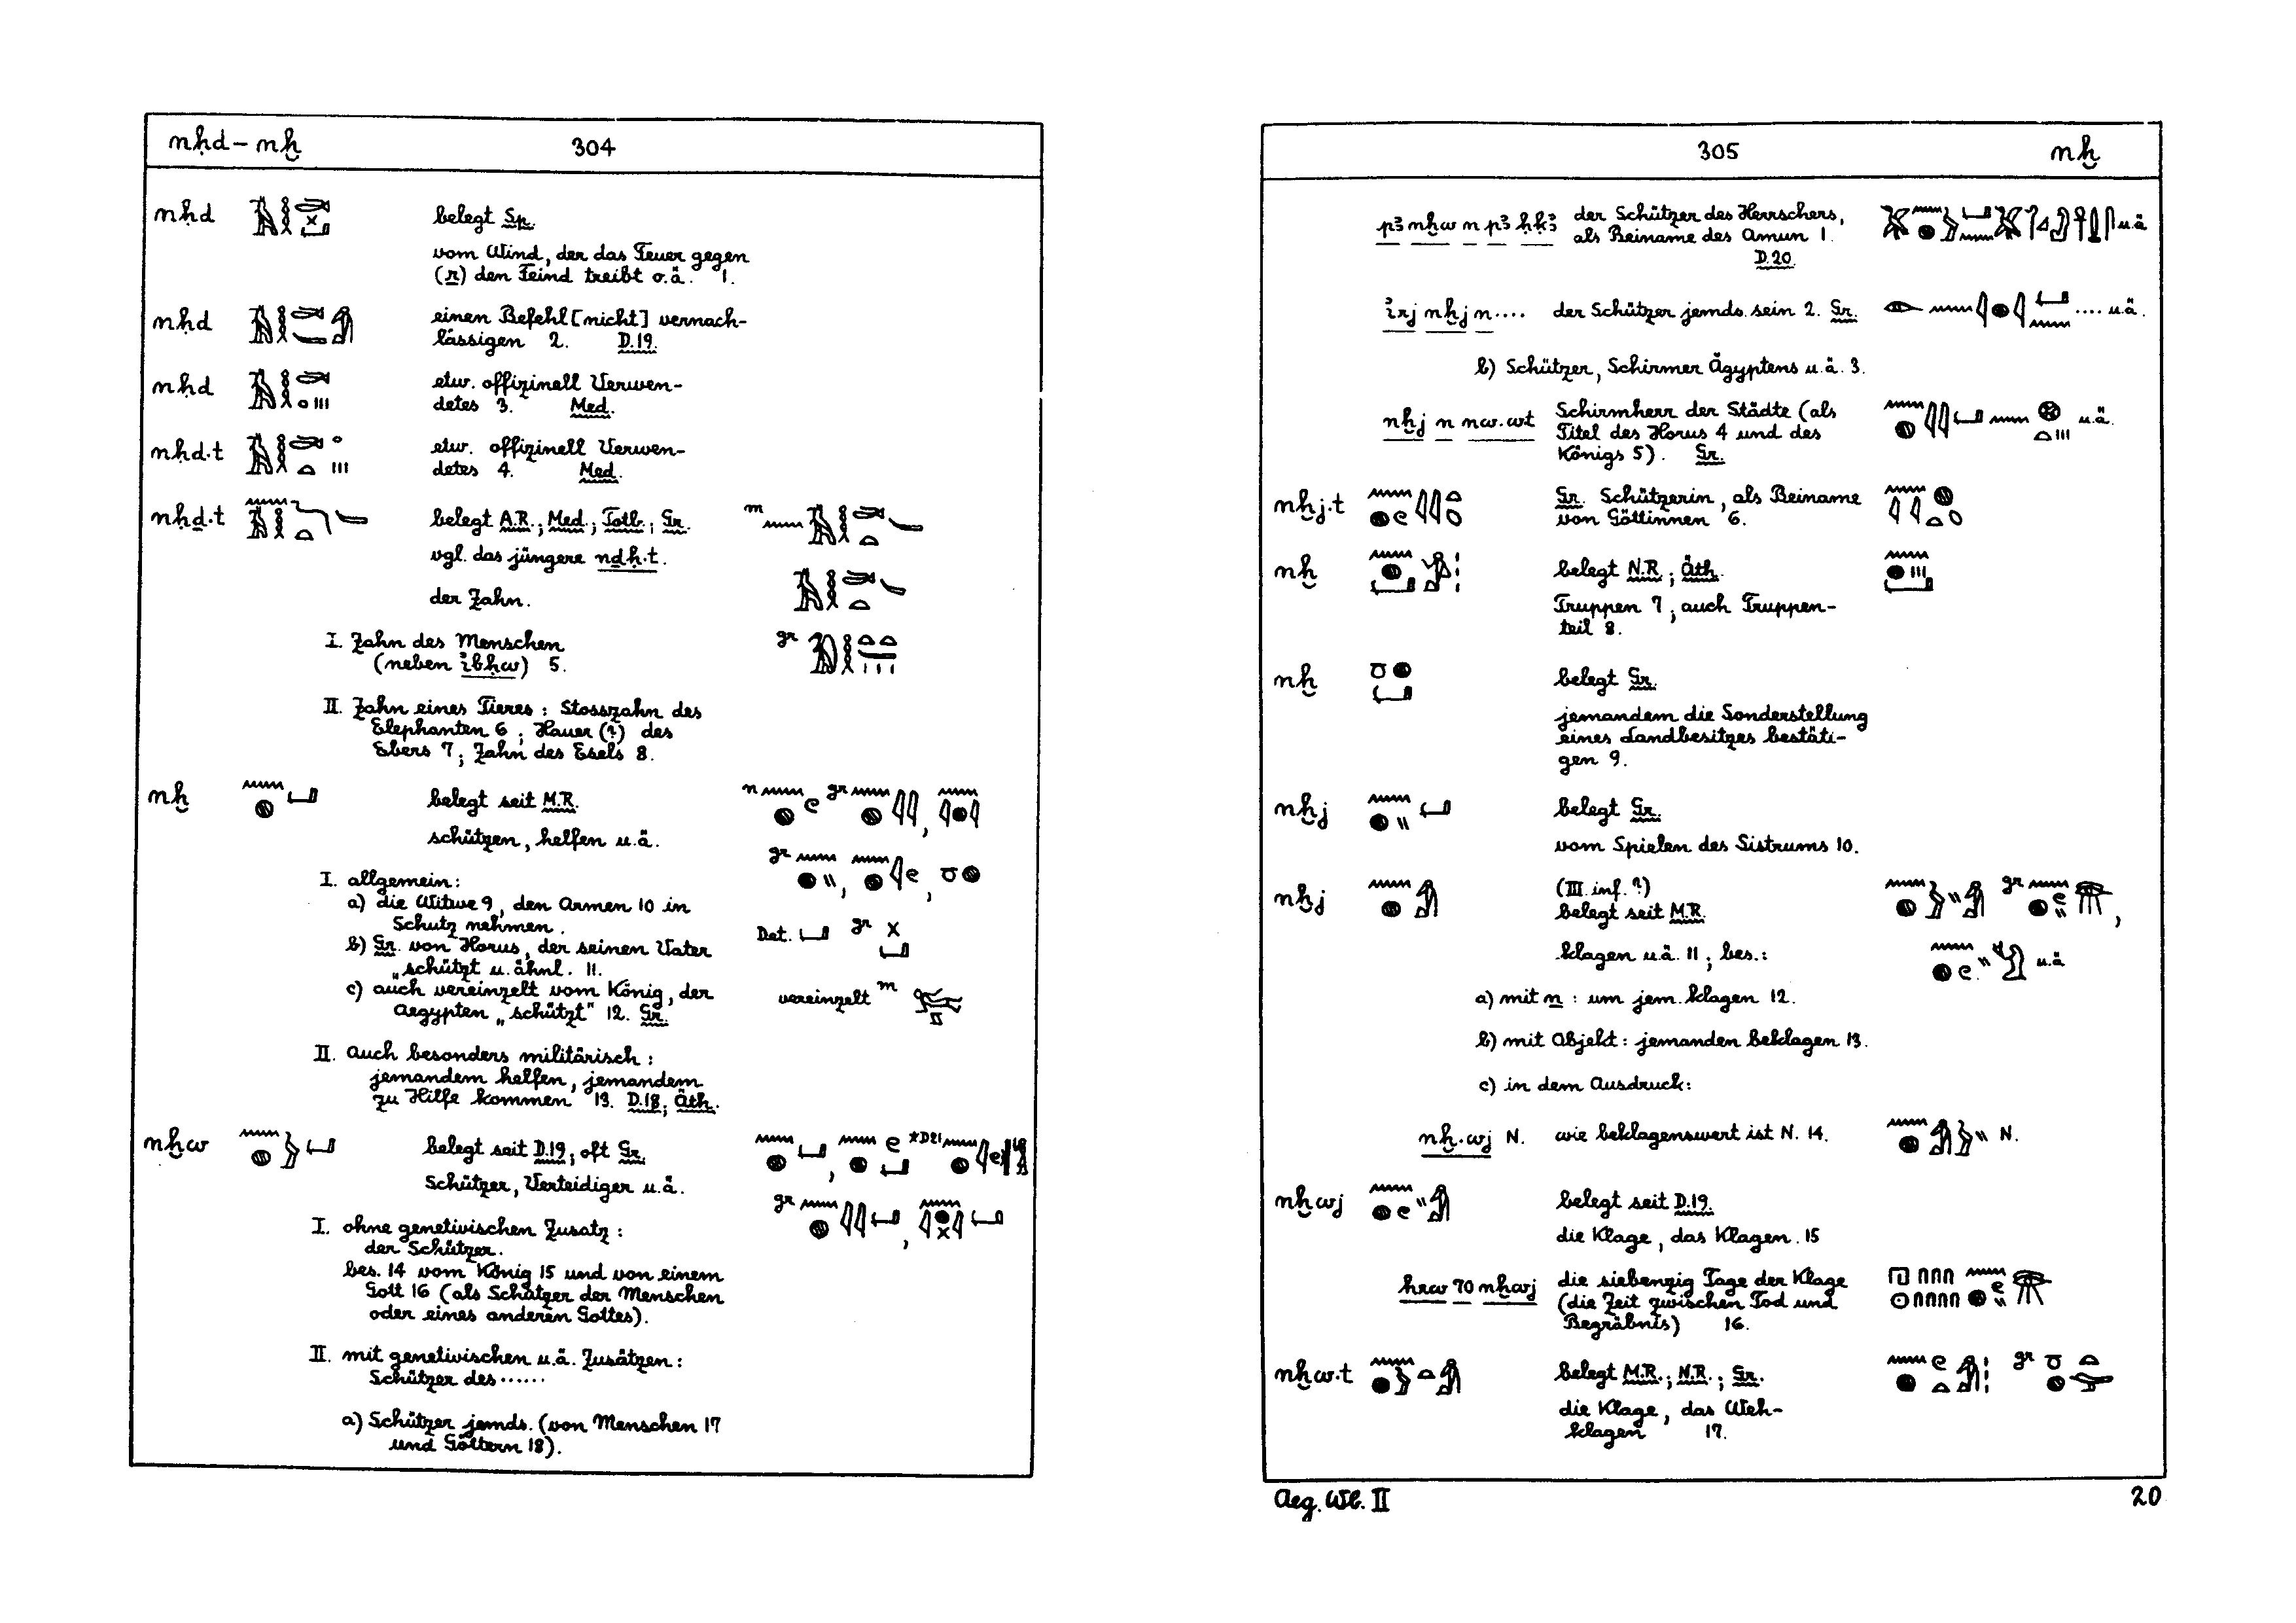 nḥd – nḫ 304
nḥd belegt Sp.
vom Wind, der das Feuer gegen
(r) den Feind treibt o.ä. 1.
nḥd einen Befehl [nicht] vernach-
lässigen 2. D.19.
nḥd etw. offizinell Verwen-
detes 3. Med.
nḥd.t etw. offizinell Verwen-
detes 4. Med.
nḥḏ.t belegt A.R.; Med.; Totb.; Gr. m
vgl. das jüngere nḏḥ.t.
der Zahn.
I. Zahn des Menschen gr
(neben ı͗bḥw) 5.
II. Zahn eines Tieres: Stosszahn des
Elephanten 6; Hauer (?) des
Ebers 7; Zahn des Esels 8.
nḫ belegt seit M.R. n gr ,
schützen, helfen u.ä.
gr , ,
I. allgemein:
a) die Witwe 9, den Armen 10 in
Schutz nehmen. Det. gr
b) Gr. von Horus, der seinen Vater
„schützt u. ähnl. 11.
c) auch vereinzelt vom König, der vereinzelt m
Aegypten „schützt“ 12. Gr.
II. Auch besonders militärisch:
jemandem helfen, jemandem
zu Hilfe kommen 13. D.18; Äth.
nḫw belegt seit D.19, oft Gr. , *D21
Schützer, Verteidiger u.ä.
gr ,
I. ohne genetivischen Zusatz:
der Schützer.
bes. 14 vom König 15 und von einem
Gott 16 (als Schützer der Menschen
oder eines anderen Gottes).
II. mit genetivischen u.ä. Zusätzen:
Schützer des ......
a) Schützer jemds. (von Menschen 17
und Göttern 18).
305 nḫ
pꜣ nḫw n pꜣ ḥḳꜣ der Schützer des Herrschers, u.ä
als Beiname des Amun 1.
D.20.
ı͗rj nḫj n.... der Schützer jemds. sein 2. Gr. .... u.ä.
b) Schützer, Schirmer Ägyptens u.ä. 3.
nḫj n nw.wt Schirmherr der Städte (als u.ä.
Titel des Horus 4 und des
Königs 5). Gr.
nḫj.t Gr. Schützerin, als Beiname
von Göttinnen 6.
nḫ belegt N.R.; Äth.
Truppen 7, auch Truppen-
teil 8.
nḫ belegt Gr.
jemandem die Sonderstellung
eines Landbesitzes bestäti-
gen 9.
nḫj belegt Gr.
vom Spielen des Sistrums 10.
nḫj (III. inf.?) gr ,
belegt seit M.R.
klagen u.ä. 11; bes.: u.ä
a) mit n: um jem. klagen 12.
b) mit Objekt: jemanden beklagen 13.
c) in dem Ausdruck:
nḫ.wj N. wie beklagenswert ist N. 14. N.
nḫwj belegt seit D.19.
die Klage, das Klagen. 15
hrw 70 nḫwj die siebenzig Tage der Klage
(die Zeit zwischen Tod und
Begräbnis) 16.
nḫw.t belegt M.R.; N.R.; Gr. gr
die Klage, das Weh-
klagen 17.
Aeg. Wb. II 20